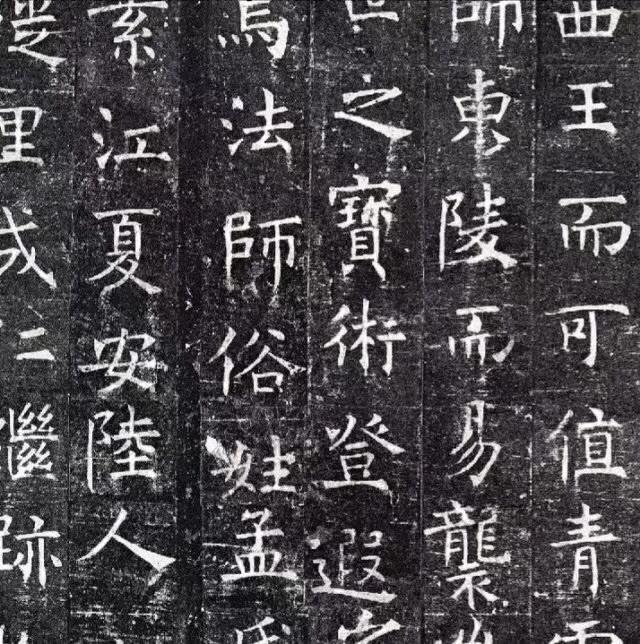 西王而可值青
師東陵而易襲
之寶術登遐
焉法師俗姓孟
素江夏安陸人
理成仁繼跡